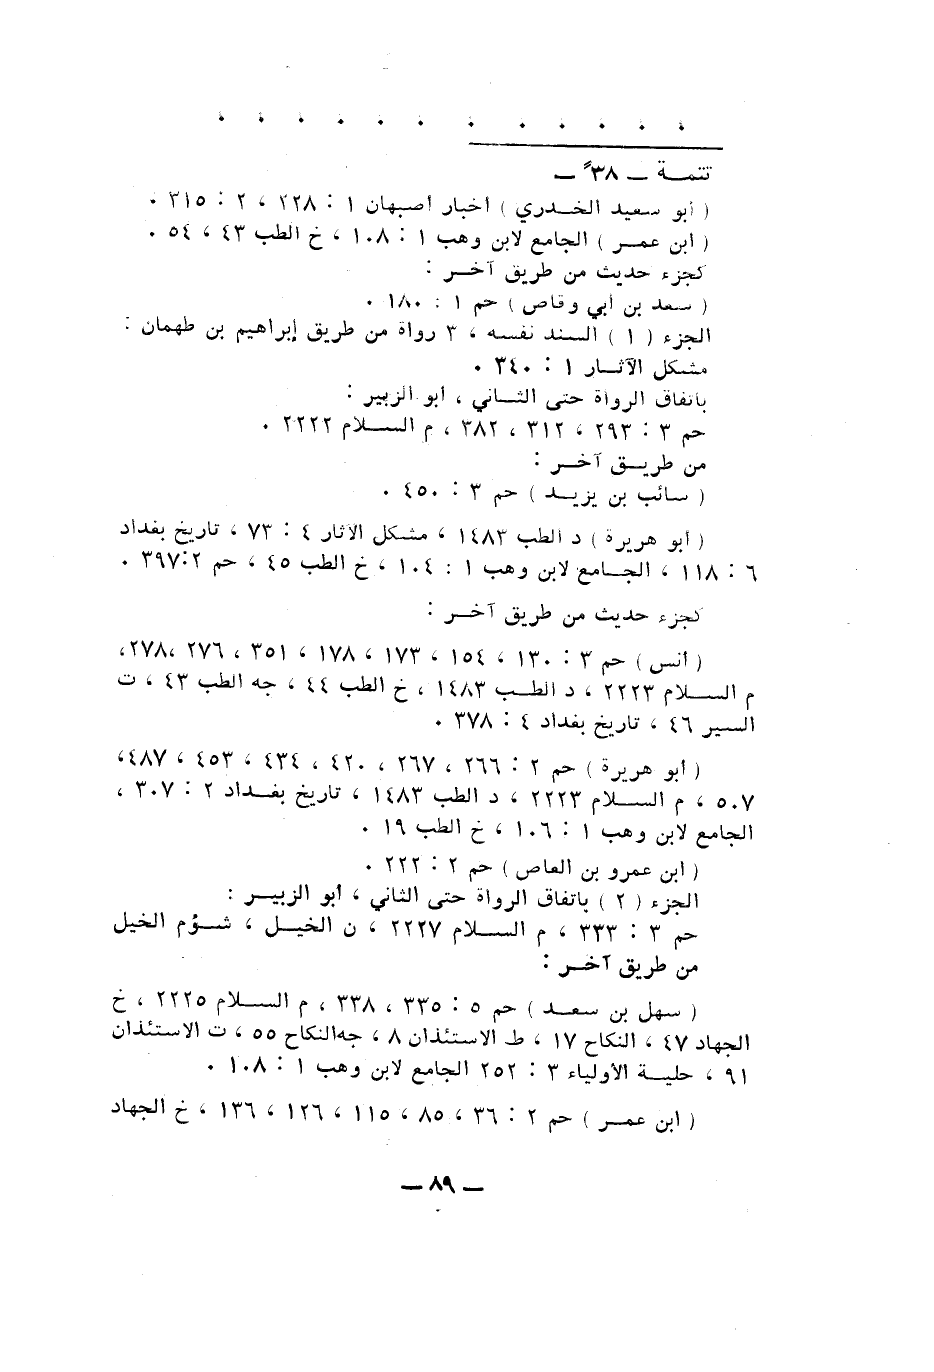 تتمـــة ــ ٣٨ ً ــ
( أبو سعيد الخـدري ) أخبار أصبهان ١ : ٢٢٨ ، ٢ : ٣١٥ .
( ابن عمـر ) الجامع لابن وهب ١ : ١٠٨ ، خ الطب ٤٣ ، ٥٤ .
كجزء حديث من طريق آخـر :
( سعد بن أبي وقاص ) حم ١ : ١٨٠ .
الجزء ( ١ ) السند نفسه ، ٣ رواة من طريق إبراهيم بن طهمان :
مشكل الآثـار ١ : ٣٤٠ .
باتفاق الرواة حتى الثـاني ، أبو الزبير :
حم ٣ : ٢٩٣ ، ٣١٢ ، ٣٨٢ ، م السـلام ٢٢٢٢ .
من طريـق آخـر :
( سائب بن يزيـد ) حم ٣ : ٤٥٠ .
( أبو هريرة ) د الطب ١٤٨٣ ، مشكل الآثار ٤ : ٧٣ ، تاريخ بغداد
٦ : ١١٨ ، الجـامع لابن وهب ١ : ١٠٤ ، خ الطب ٤٥ ، حم ٢:٣٩٧ .
كجزء حديث من طريق آخـر :
( أنس ) حم ٣ : ١٣٠ ، ١٥٤ ، ١٧٣ ، ١٧٨ ، ٣٥١ ، ٢٧٦ ،٢٧٨،
م السـلام ٢٢٢٣ ، د الطـب ١٤٨٣ ، خ الطب ٤٤ ، جه الطب ٤٣ ، ت
السير ٤٦ ، تاريخ بغداد ٤ : ٣٧٨ .
( أبو هريرة ) حم ٢ : ٢٦٦ ، ٢٦٧ ، ٤٢٠ ، ٤٣٤ ، ٤٥٣ ، ٤٨٧،
٥٠٧ ، م السـلام ٢٢٢٣ ، د الطب ١٤٨٣ ، تاريخ بغـداد ٢ : ٣٠٧ ،
الجامع لابن وهب ١ : ١٠٦ ، خ الطب ١٩ .
( ابن عمرو بن العاص ) حم ٢ : ٢٢٢ .
الجزء ( ٢ ) باتفاق الرواة حتى الثاني ، أبو الزبيـر :
حم ٣ : ٣٣٣ ، م السـلام ٢٢٢٧ ، ن الخيـل ، شـؤم الخيل
من طريق آخـر :
( سهل بن سعـد ) حم ٥ : ٣٣٥ ، ٣٣٨ ، م السـلام ٢٢٢٥ ، خ
الجهاد ٤٧ ، النكاح ١٧ ، ط الاستئذان ٨ ، جه النكاح ٥٥ ، ت الاستئذان
٩١ ، حليـة الأولياء ٣ : ٢٥٢ الجامع لابن وهب ١ : ١٠٨ .
( ابن عمـر ) حم ٢ : ٣٦ ، ٨٥ ، ١١٥ ، ١٢٦ ، ١٣٦ ، خ الجهاد
ــ ٨٩ ــ